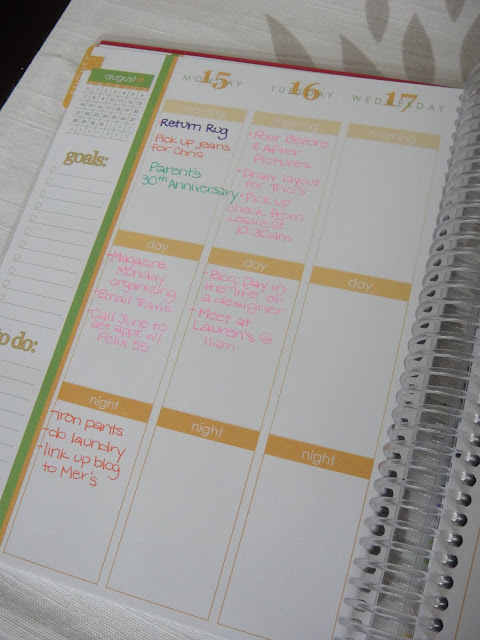 august
goals:
to do:
15
MONDAY
morning
Return Rug
Pick up jeans
for Chris
Parent's
30th Anniversary
day
- Magazine
Monday
organizing
- Email Tram's
- Call June to
set appt w/
Felix 55
night
- iron pants
- do laundry
- link up blog
to Mer's
16
TUESDAY
morning
• Post Before
& After
Pictures
• Draw layout
for Thio's
• Pick up
check from
Leslie @
10:30am
day
- Blog: Day in
the life of
a designer
- Meet at
Lauren's @
11am
night
17
WEDNESDAY
morning
day
night